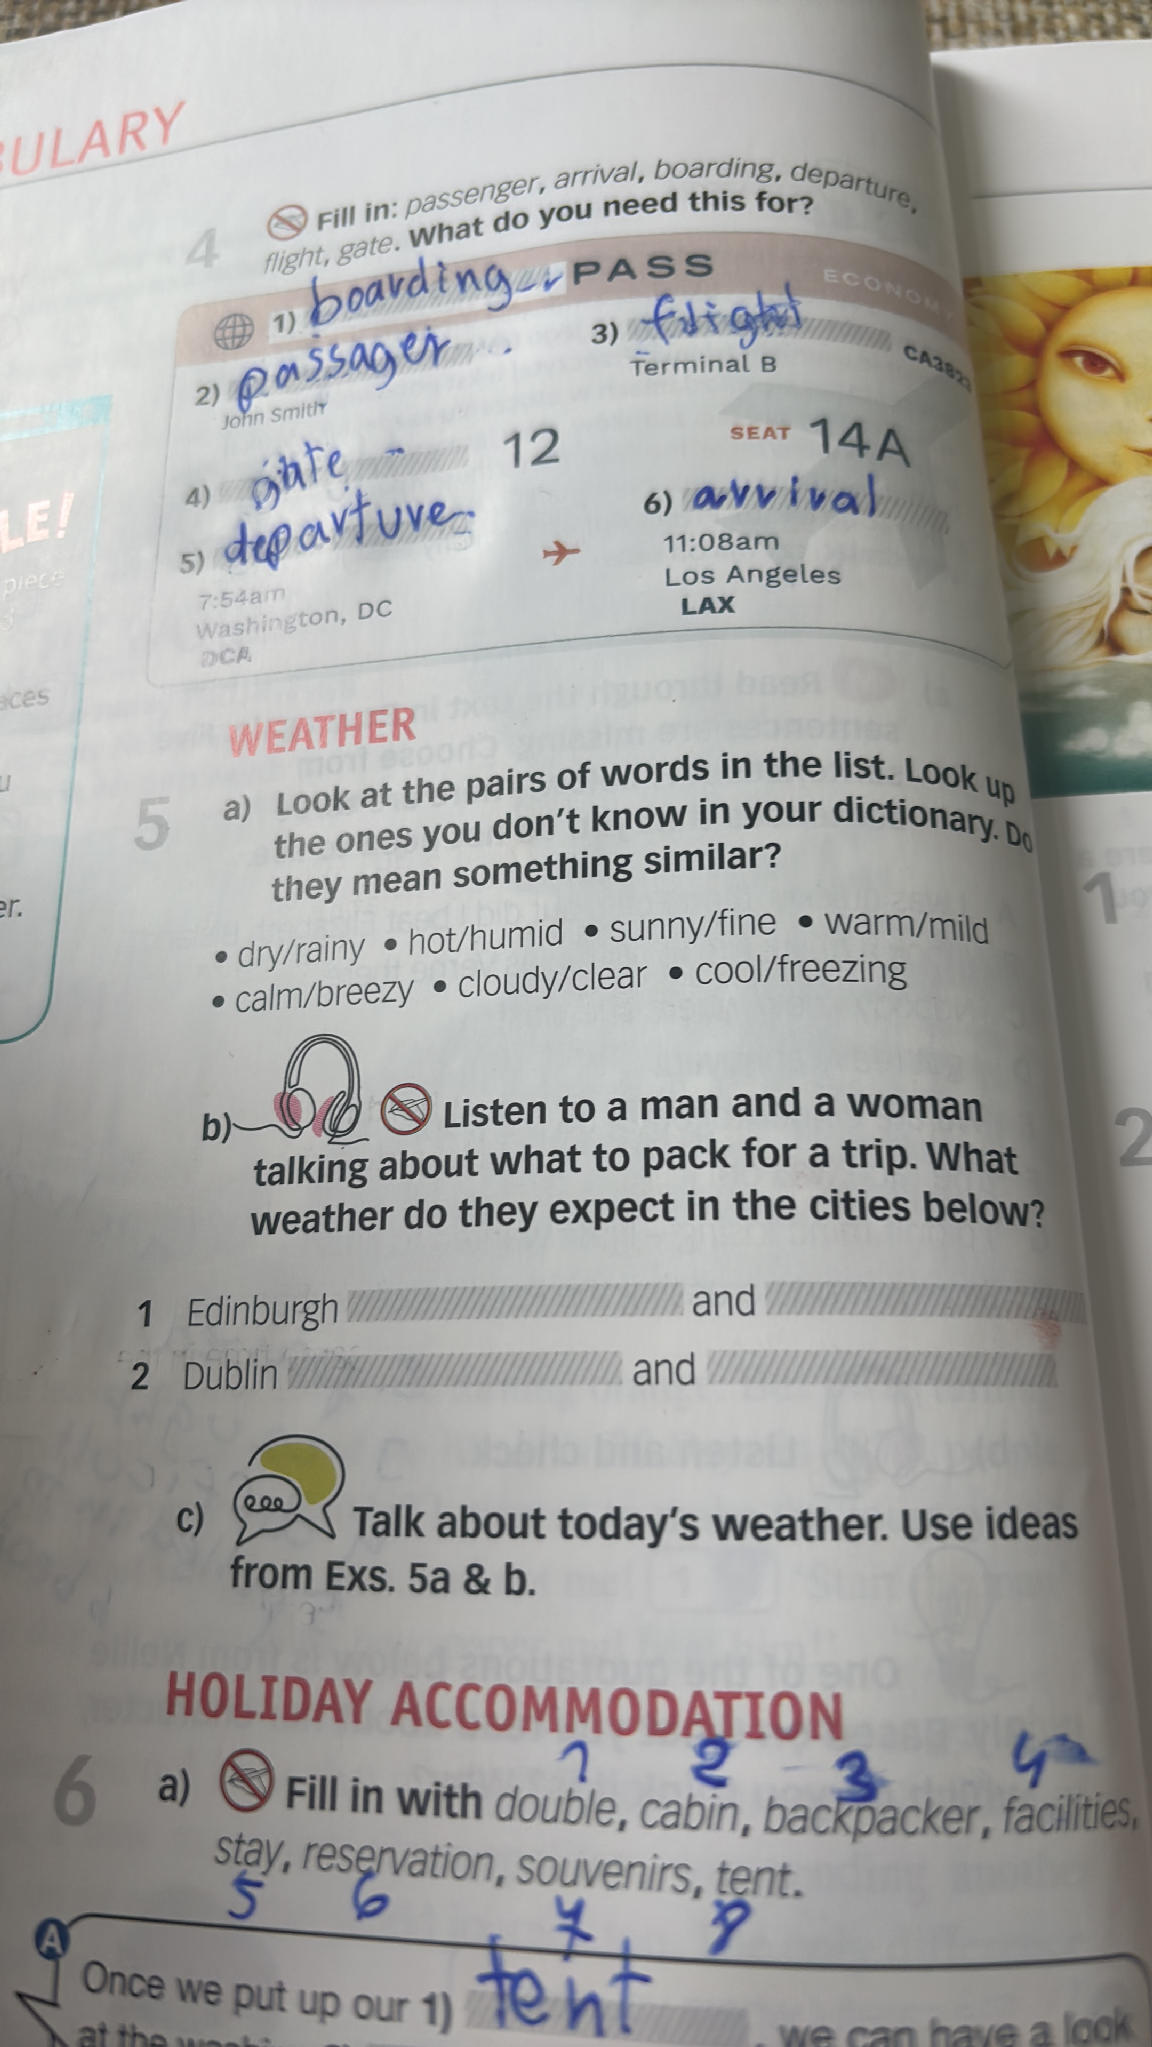 BULARY
4 Fill in: passenger, arrival, boarding, departure,
flight, gate. What do you need this for?
1) boarding PASS
ECONOMY
2) passager
John Smith
3) flight
Terminal B
CA3823
4) gate 12
SEAT 14A
5) departure
7:54am
Washington, DC
DCA
6) arrival
11:08am
Los Angeles
LAX
LE!
piece
aces
u
er.
WEATHER
5 a) Look at the pairs of words in the list. Look up
the ones you don't know in your dictionary. Do
they mean something similar?
• dry/rainy • hot/humid • sunny/fine • warm/mild
• calm/breezy • cloudy/clear • cool/freezing
b) Listen to a man and a woman
talking about what to pack for a trip. What
weather do they expect in the cities below?
1 Edinburgh and
2 Dublin and
c) Talk about today's weather. Use ideas
from Exs. 5a & b.
HOLIDAY ACCOMMODATION
1 2 3 4
6 a) Fill in with double, cabin, backpacker, facilities,
stay, reservation, souvenirs, tent.
5 6 7 8
A
Once we put up our 1) tent, we can have a look
at the
1
2